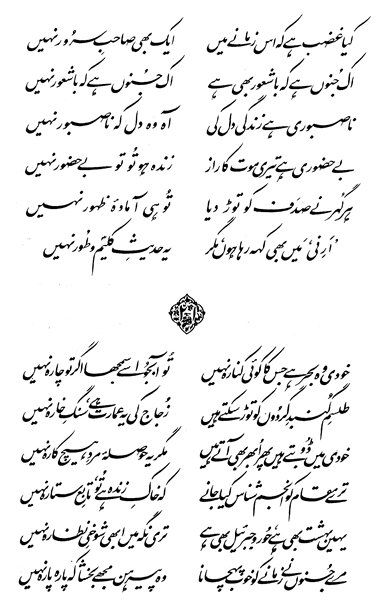 کیا غضب ہے کہ اس زمانے میں ایک بھی صاحبِ سرور نہیں
اک جنوں ہے کہ باشعور بھی ہے اک جنوں ہے کہ باشعور نہیں
ناصبوری ہے زندگی دل کی آہ وہ دل کہ ناصبور نہیں
بے حضوری ہے تیری موت کا راز زندہ ہو تُو تو بے حضور نہیں
ہر گہر نے صدف کو توڑ دیا تُو ہی آمادۂ ظہور نہیں
'اَرِنی' میں بھی کہہ رہا ہوں مگر یہ حدیثِ کلیمؑ و طور نہیں
خودی وہ بحر ہے جس کا کوئی کنارہ نہیں تُو آبجو اسے سمجھا اگر تو چارہ نہیں
طلسمِ گنبدِ گردوں کو توڑ سکتے ہیں زُجاج کی یہ عمارت ہے، سنگِ خارہ نہیں
خودی میں ڈوبتے ہیں پھر ابھر بھی آتے ہیں مگر یہ حوصلۂ مردِ ہیچ کارہ نہیں
ترے مقام کو انجم شناس کیا جانے کہ خاکِ زندہ ہے تُو، تابعِ ستارہ نہیں
یہیں بہشت بھی ہے، حور و جبرئیل بھی ہے تری نگہ میں ابھی شوخیِ نظارہ نہیں
مرے جنوں نے زمانے کو خوب پہچانا وہ پیرہن مجھے بخشا کہ پارہ پارہ نہیں